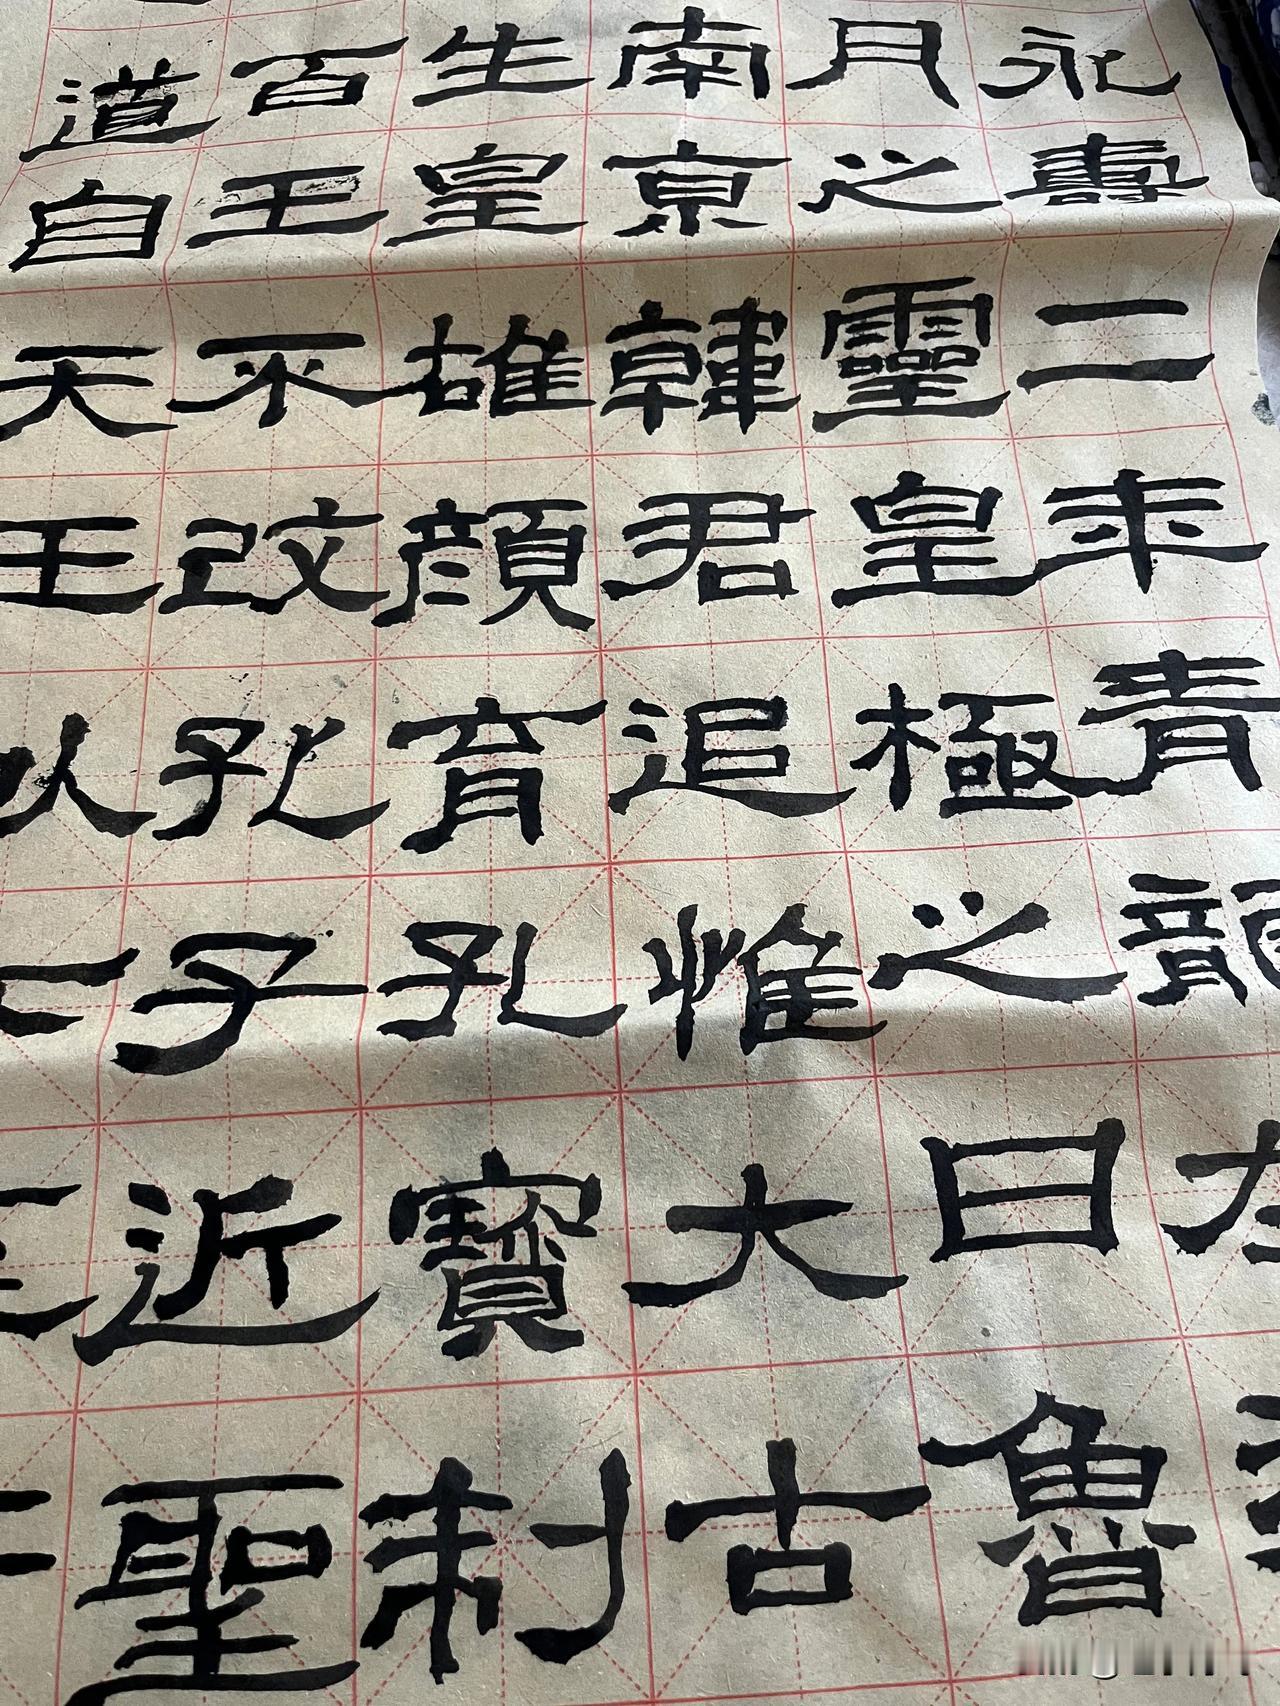 永壽二年青龍在
月之靈皇極之日魯
南京韓君追惟大古
生皇雄顏育孔寶制
百王不改孔子近聖
道自天王以